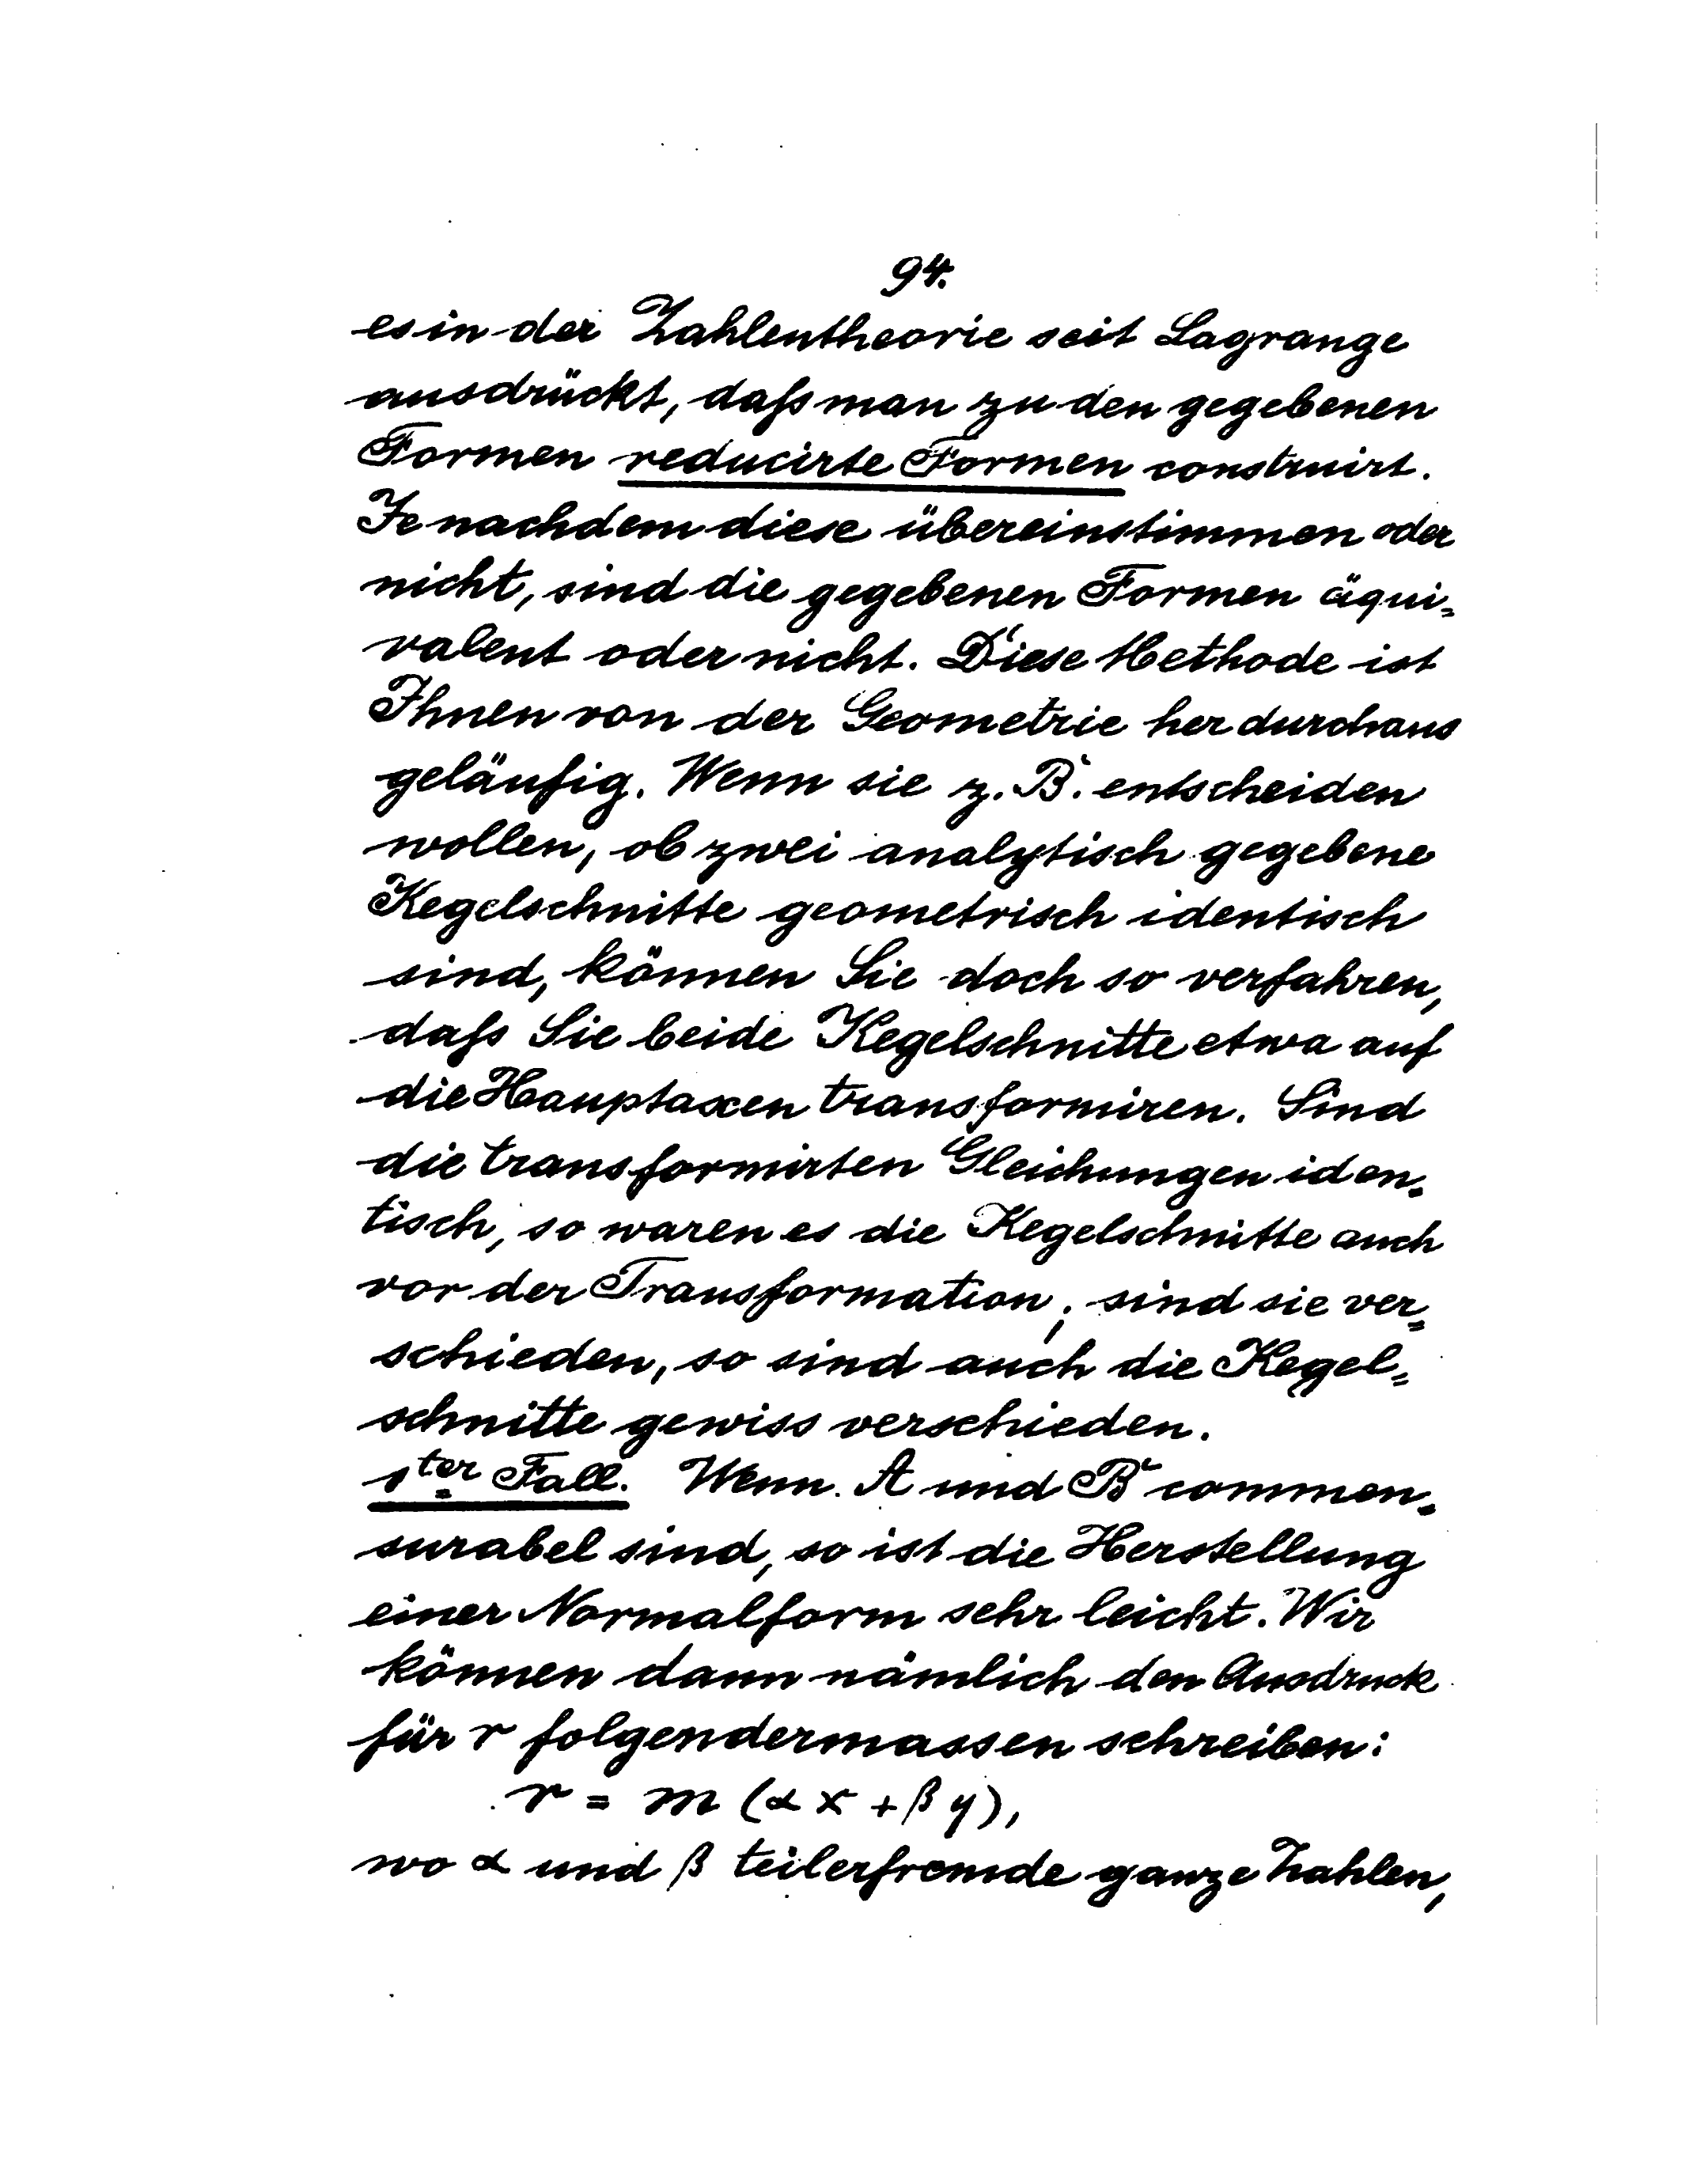 94.
es in der Zahlentheorie seit Lagrange
ausdrückt, daß man zu den gegebenen
Formen reducirte Formen construirt.
Je nachdem diese übereinstimmen oder
nicht, sind die gegebenen Formen äqui=
valent oder nicht. Diese Methode ist
Ihnen von der Geometrie her durchaus
geläufig. Wenn sie z. B. entscheiden
wollen, ob zwei analytisch gegebene
Kegelschnitte geometrisch identisch
sind, können Sie doch so verfahren,
daß Sie beide Kegelschnitte etwa auf
die Hauptaxen transformiren. Sind
die transformirten Gleichungen iden=
tisch, so waren es die Kegelschnitte auch
vor der Transformation; sind sie ver=
schieden, so sind auch die Kegel=
schnitte gewiss verschieden.
1ter Fall. Wenn A und B commen=
surabel sind, so ist die Herstellung
einer Normalform sehr leicht. Wir
können dann nämlich den Ausdruck
für r folgendermassen schreiben:
r = m (α x + β y),
wo α und β teilerfremde ganze Zahlen,